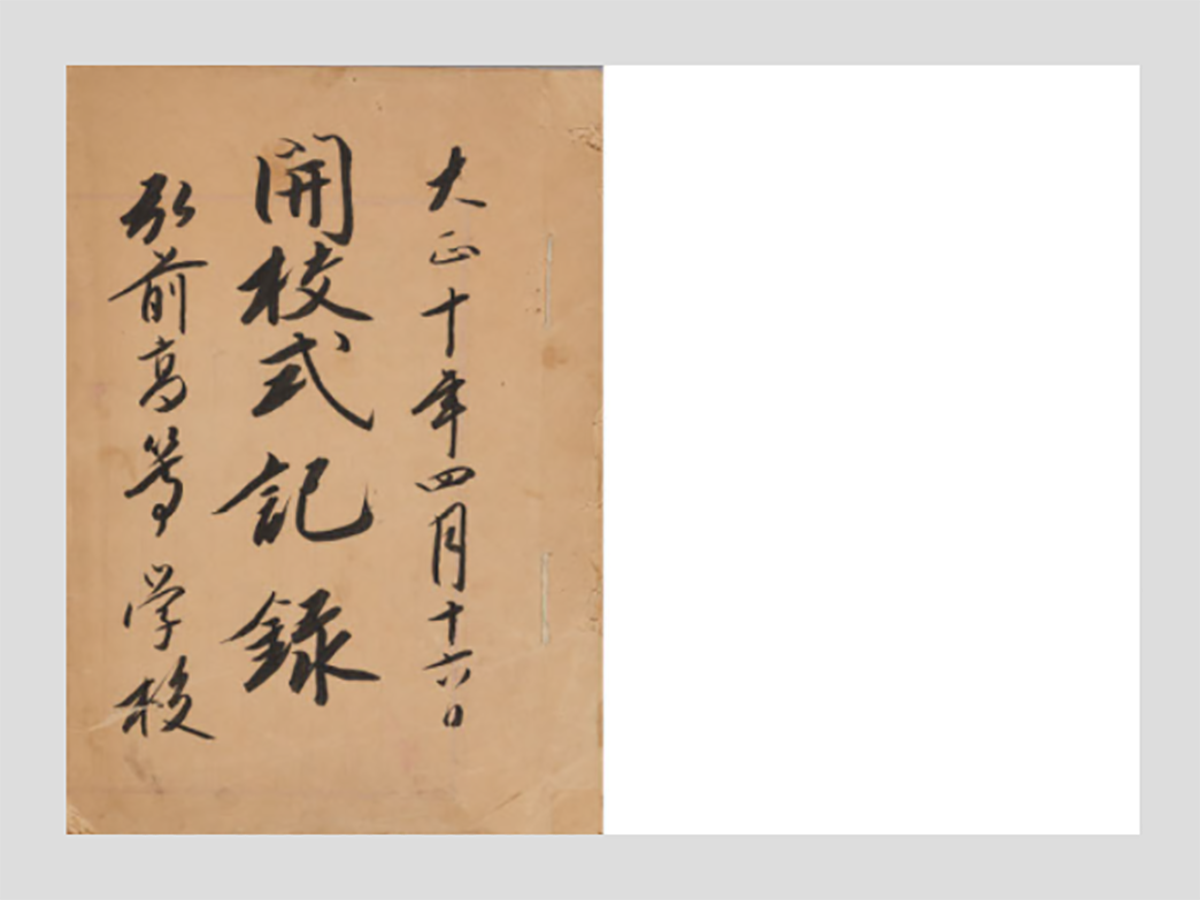 大正十年四月十六日
開校式記録
弘前高等学校